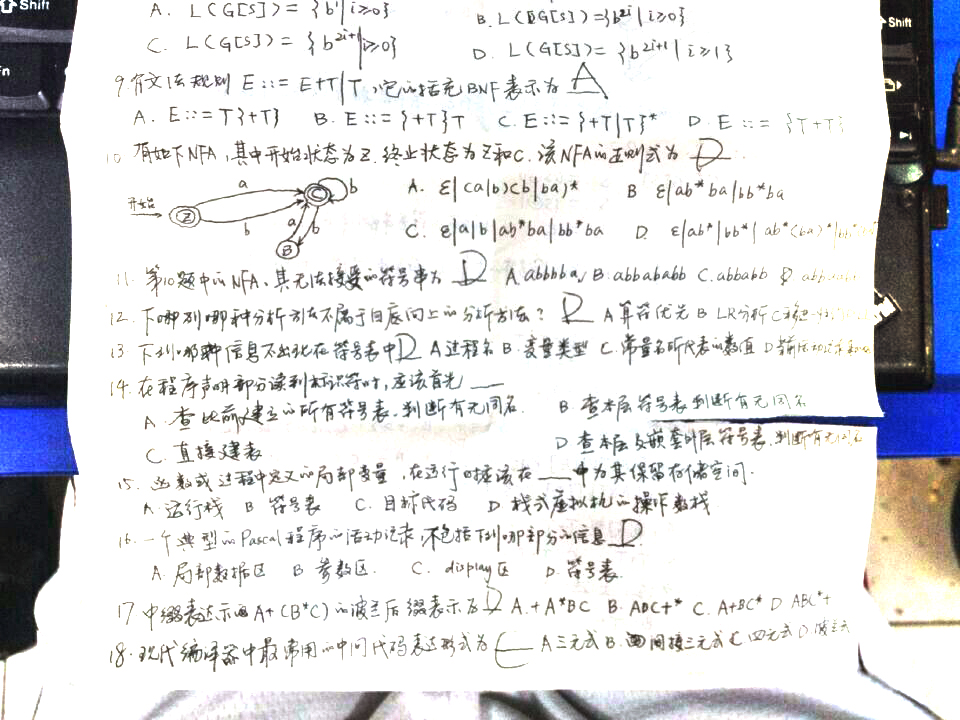 Shift
Shift
A. L(G[S]) = {bⁱ|i≥0} B. L(G[S])={b²ⁱ|i≥0}
C. L(G[S]) = {b²ⁱ⁺¹|i≥0} D. L(G[S])= {b²ⁱ⁺¹|i≥1}
9.有文法规则 E::= E+T|T,它的扩充BNF表示为 A
A. E::= T{+T} B. E::= {+T}T C. E::= {+T|T}* D. E ::= {T+T}
10. 有如下NFA,其中开始状态为Z.终止状态为Z和C.该NFA的正则式为 D.
开始 Z a b C b a b B
A. ε|(a|b)(b|ba)* B ε|ab*ba|bb*ba
C. ε|a|b|ab*ba|bb*ba D. ε|ab*|bb*|ab*(ba)*|bb*
11. 第10题中的NFA,其无法接受的符号串为 D A.abbbba, B.abbababb C.abbabb D
12. 下列哪种分析方法不属于自底向上的分析方法? D A 算符优先 B LR分析 C
13. 下列哪种信息不出现在符号表中 D A过程名 B.变量类型 C.常量名所代表的数值 D
14. 在程序声明部分读到标识符时,应该首先
A. 查此前建立的所有符号表,判断有无同名. B. 查本层符号表判断有无同名
C. 直接建表 D 查本层及嵌套外层符号表.判断有无同名
15. 函数或过程中定义的局部变量,在运行时应该在 中为其保留存储空间.
A.运行栈 B 符号表 C. 目标代码 D 栈式虚拟机的操作数栈
16. 一个典型的Pascal程序的活动记录,不包括下列哪部分的信息 D
A. 局部数据区 B 参数区. C. display区 D. 符号表.
17 中缀表达示 A+(B*C)的波兰后缀表示为 D A.+A*BC B.ABC+* C. A+BC* D ABC*+
18. 现代编译器中最常用的中间代码表达形式为 C A三元式 B. 间接三元式 C 四元式 D.